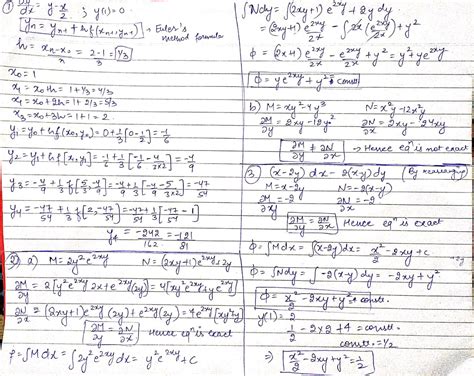 ① dy/dx = y - x/2 ; y(1) = 0
y_n = y_{n-1} + h f(x_{n-1}, y_{n-1}) → Euler's method formula
h = x_n - x_0 / 3 = 2-1/3 = 1/3
x_0 = 1
x_1 = x_0 + h = 1 + 1/3 = 4/3
x_2 = x_0 + 2h = 1 + 2/3 = 5/3
x_3 = x_0 + 3h = 1 + 1 = 2
y_1 = y_0 + h f(x_0, y_0) = 0 + 1/3 [0 - 1/2] = -1/6
y_2 = y_1 + h f[x_1, y_1] = -1/6 + 1/3 [-1/6 - 4/3×2] = -4/9
y_3 = -4/9 + 1/3 f[5/3, -4/9] = -4/9 + 1/3 [-4/9 - 5/3×2] = -47/54
y_4 = -47/54 + 1/3 f[2, -47/54] = -47/54 + 1/3 [-47/54 - 1]
y_4 = -242/162 = -121/81
② a) M = 2y² e^{2xy} N = (2xy+1) e^{2xy} + 2y
∂M/∂y = 2[y² e^{2xy} 2x + e^{2xy} (2y)] = 4[xy² e^{2xy} + y e^{2xy}]
∂N/∂x = (2xy+1) e^{2xy} (2y) + e^{2xy} (2y) = 4e^{2xy} [xy² + y]
∂M/∂y = ∂N/∂x Hence eqⁿ is exact
φ = ∫M dx = ∫2y² e^{2xy} dx = y e^{2xy} + c
∫N dy = ∫(2xy+1) e^{2xy} + 2y dy
= (2xy+1) e^{2xy}/2x - ∫2x (e^{2xy}/2x) + y²
φ = (2xy+1) e^{2xy}/2x - e^{2xy}/2x + y² = y² + y e^{2xy}
φ = y e^{2xy} + y² = const.
b) M = xy² - 4y³ N = x²y - 12x²y
∂M/∂y = 2xy - 12y² ∂N/∂x = 2xy - 24xy
∂M/∂y ≠ ∂N/∂x → Hence eqⁿ is not exact
③ (x-2y) dx - 2(x-y) dy (By rearranging)
M = x-2y N = -2(x-y)
∂M/∂y = -2 ∂N/∂x = -2
∂M/∂y = ∂N/∂x Hence eqⁿ is exact
φ = ∫M dx = ∫(x-2y) dx = x²/2 - 2xy + c
φ = ∫N dy = ∫-2(x-y) dy = -2xy + y²
φ = x²/2 - 2xy + y² = const.
y(1) = 2
1/2 - 2×2 + 4 = const.
const. = 1/2
⇒ x²/2 - 2xy + y² = 1/2